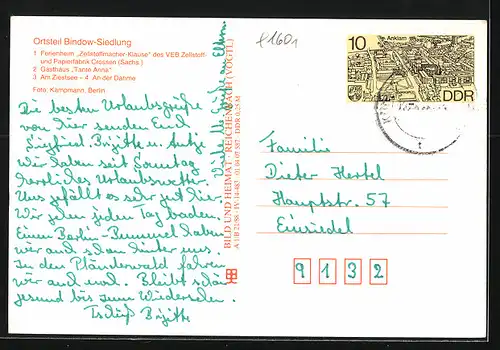 Ortsteil Bindow-Siedlung
1 Ferienheim „Zellstoffmacher-Klause“ des VEB Zellstoff-
und Papierfabrik Crossen (Sachs.)
2 Gasthaus „Tante Anna“
3 Am Ziestsee – 4 An der Dahme
Foto: Kampmann, Berlin
Die besten Urlaubsgrüße
von hier senden Euch
Siegfried, Brigitte u. Antje
Wir haben seit Sonntag
herrliches Urlaubswetter.
Uns gefällt es sehr gut hier.
Wir gehen jeden Tag baden.
Einen Berlin-Bummel haben
wir auch schon hinter uns.
In den Plänterwald fahren
wir auch mal. Bleibt schön
gesund bis zum Wiedersehen.
Tschüß Brigitte
Viele Grüße an Eltern
BILD UND HEIMAT · REICHENBACH (VOGTL)
A 1/B 21/88 · IV-14-483 · 01 04 07 387 · DDR 0,25 M
f1601
Anklam
10
DDR
Familie
Dieter Hertel
Hauptstr. 57
Einsiedel
9132